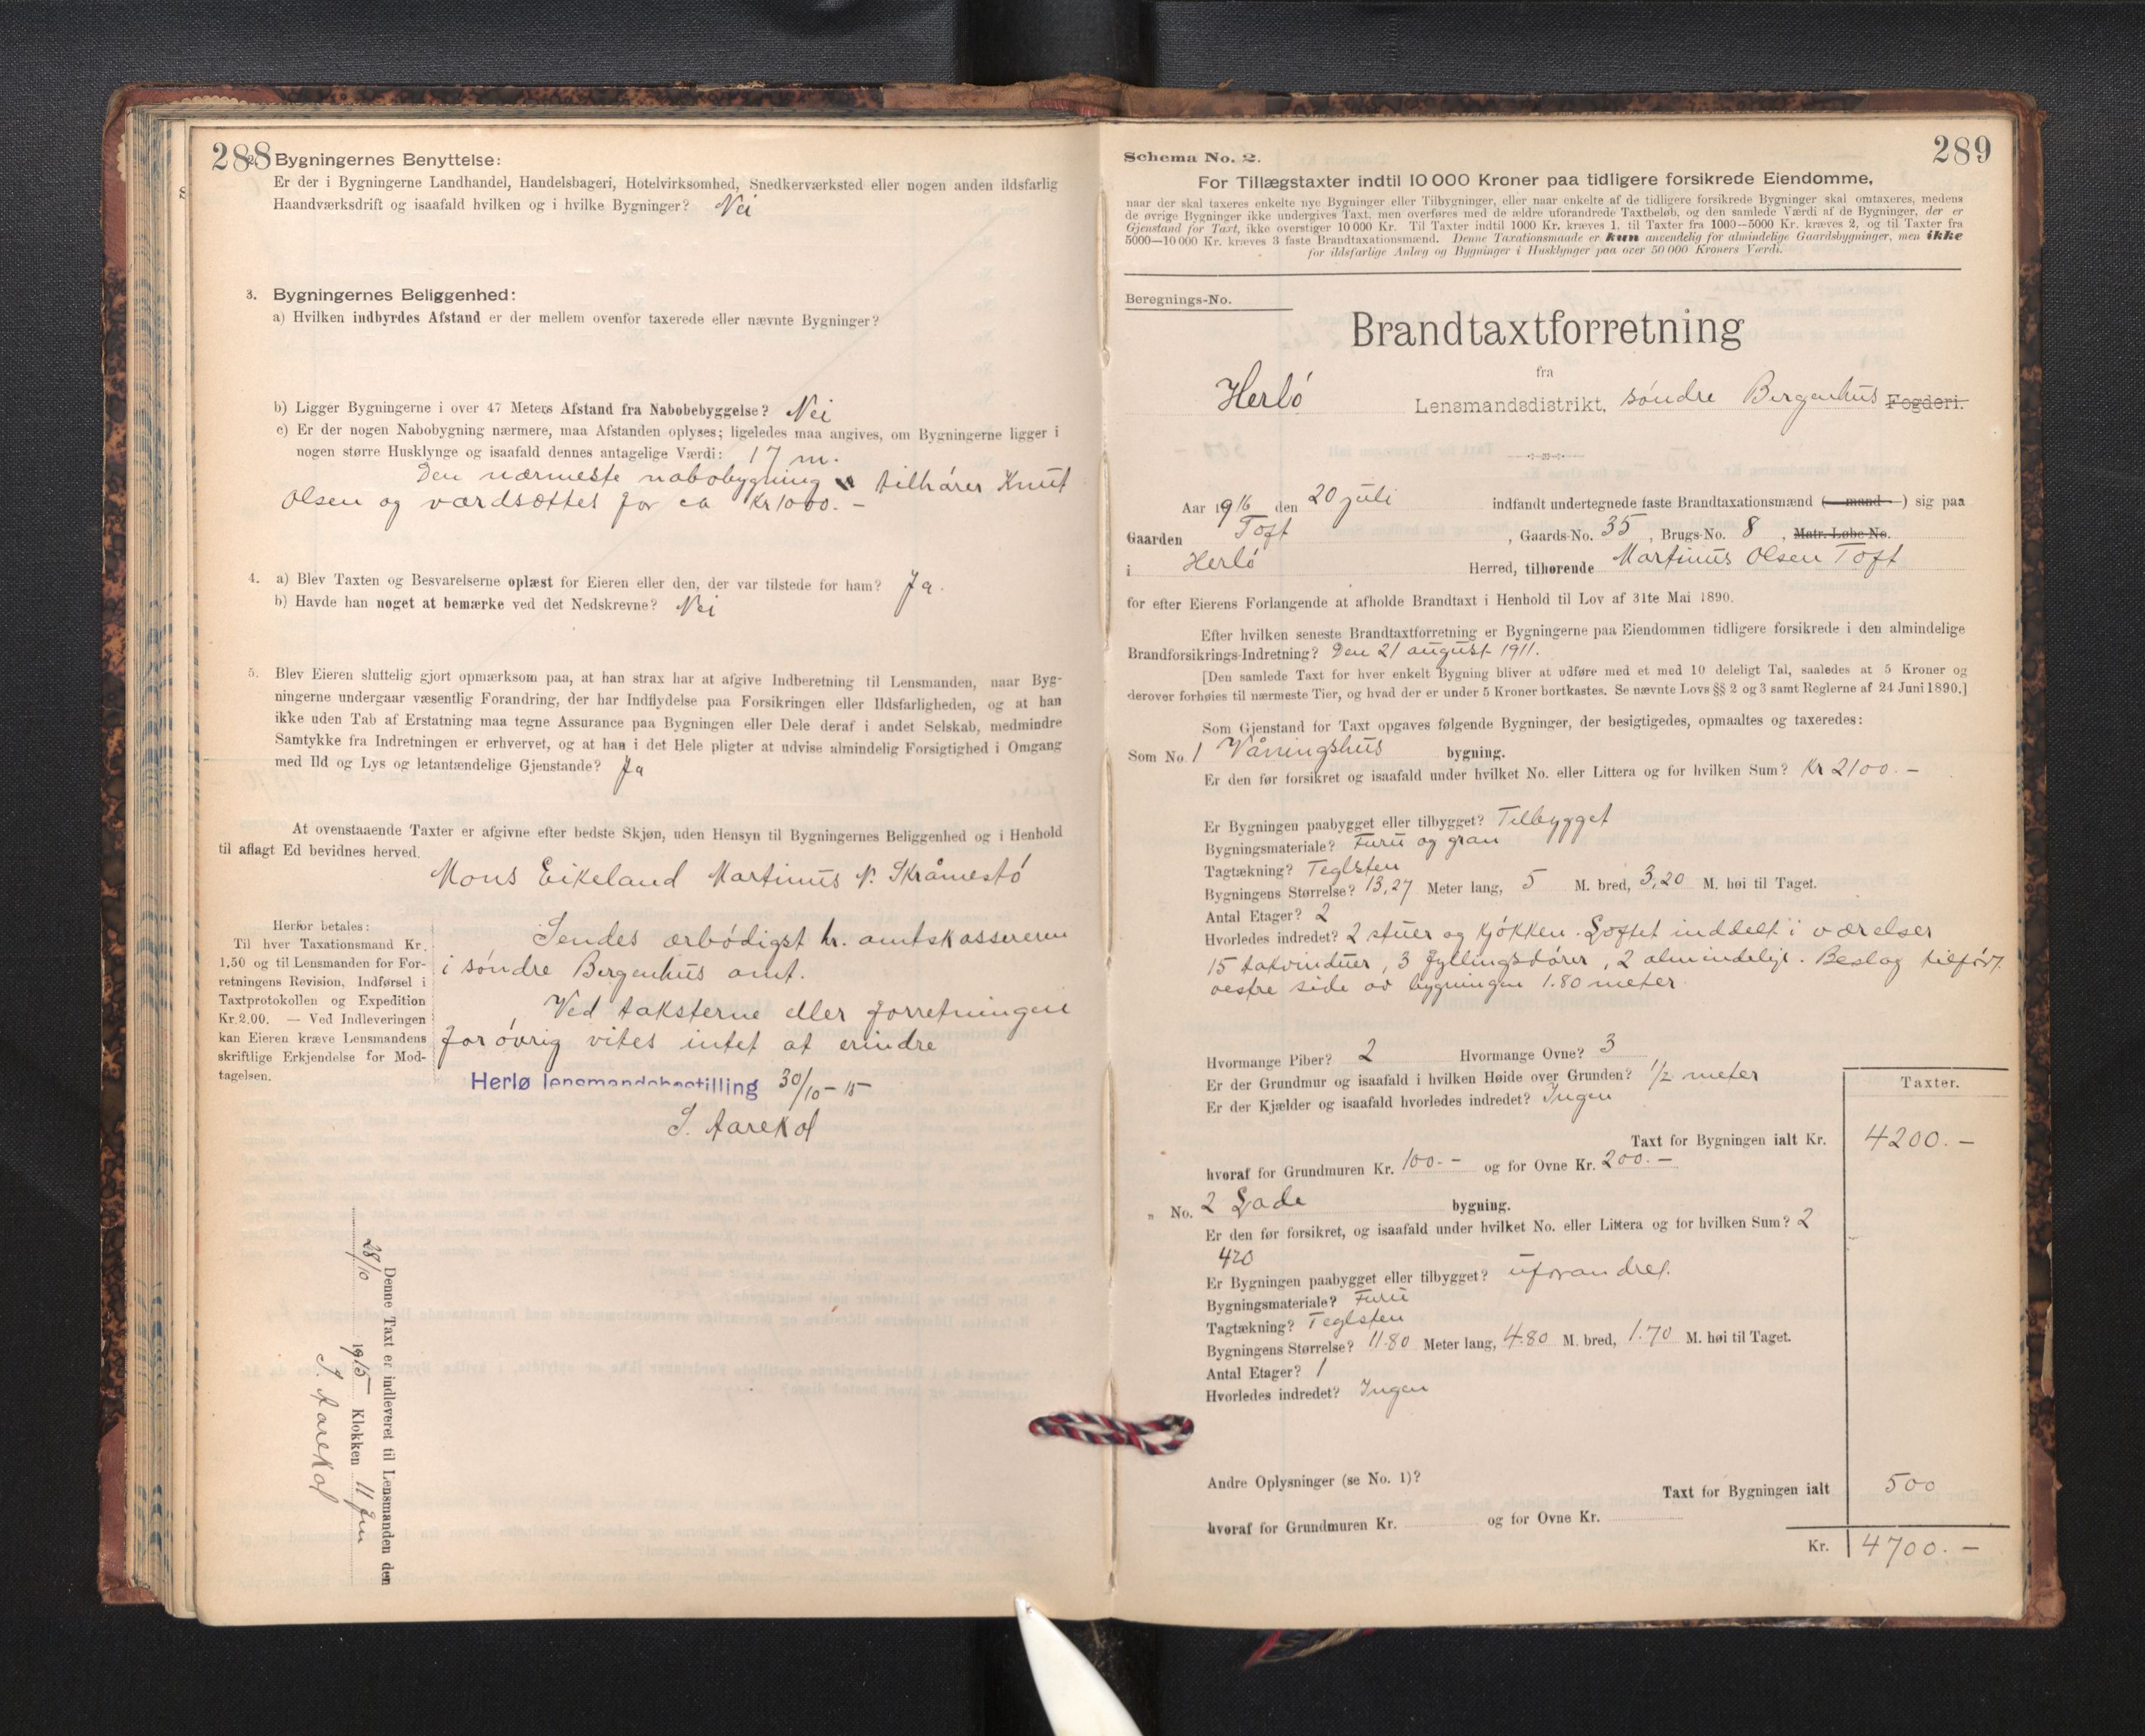 288
2. Bygningernes Benyttelse:
Er der i Bygningerne Landhandel, Handelsbageri, Hotelvirksomhed, Snedkerværksted eller nogen anden ildsfarlig
Haandværksdrift og isaafald hvilken og i hvilke Bygninger? Nei
3. Bygningernes Beliggenhed:
a) Hvilken indbyrdes Afstand er der mellem ovenfor taxerede eller nævnte Bygninger?
b) Ligger Bygningerne i over 47 Meters Afstand fra Nabobebyggelse? Nei
c) Er der nogen Nabobygning nærmere, maa Afstanden oplyses; ligeledes maa angives, om Bygningerne ligger i
nogen større Husklynge og isaafald dennes antagelige Værdi: 17 m.
Den nærmeste nabobygning tilhører Knut
Olsen og værdsættes for ca Kr 1000.-
4. a) Blev Taxten og Besvarelserne oplæst for Eieren eller den, der var tilstede for ham? Ja.
b) Havde han noget at bemærke ved det Nedskrevne? Nei
5. Blev Eieren sluttelig gjort opmærksom paa, at han strax har at afgive Indberetning til Lensmanden, naar Byg-
ningerne undergaar væsentlig Forandring, der har Indflydelse paa Forsikringen eller Ildsfarligheden, og at han
ikke uden Tab af Erstatning maa tegne Assurance paa Bygningen eller Dele deraf i andet Selskab, medmindre
Samtykke fra Indretningen er erhvervet, og at han i det Hele pligter at udvise almindelig Forsigtighed i Omgang
med Ild og Lys og letantændelige Gjenstande? Ja
At ovenstaaende Taxter er afgivne efter bedste Skjøn, uden Hensyn til Bygningernes Beliggenhed og i Henhold
til aflagt Ed bevidnes herved.
Mons Eikeland Martinus N. Skråmestø
Herfor betales:
Til hver Taxationsmand Kr.
1,50 og til Lensmanden for For-
retningens Revision, Indførsel i
Taxtprotokollen og Expedition
Kr. 2.00. — Ved Indleveringen
kan Eieren kræve Lensmandens
skriftlige Erkjendelse for Mod-
tagelsen.
Sendes ærbødigst hr. amtskassereren
i søndre Bergenhus amt.
Ved taksterne eller forretningen
forøvrig vites intet at erindre
Herlø lensmandsbestilling 30/10-15
S. Aarekol
Denne Taxt er indleveret til Lensmanden den
28/10 1915 Klokken 11 fm
S. Aarekol
289
Schema No. 2.
For Tillægstaxter indtil 10 000 Kroner paa tidligere forsikrede Eiendomme,
naar der skal taxeres enkelte nye Bygninger eller Tilbygninger, eller naar enkelte af de tidligere forsikrede Bygninger skal omtaxeres, medens
de øvrige Bygninger ikke undergives Taxt, men overføres med de ældre uforandrede Taxtbeløb, og den samlede Værdi af de Bygninger, der er
Gjenstand for Taxt, ikke overstiger 10 000 Kr. Til Taxter indtil 1000 Kr. kræves 1, til Taxter fra 1000—5000 Kr. kræves 2, og til Taxter fra
5000—10 000 Kr. kræves 3 faste Brandtaxationsmænd. Denne Taxationsmaade er kun anvendelig for almindelige Gaardsbygninger, men ikke
for ildsfarlige Anlæg og Bygninger i Husklynger paa over 50 000 Kroners Værdi.
Beregnings-No.
Brandtaxtforretning
fra
Herlö Lensmandsdistrikt, søndre Bergenhus Fogderi.
Aar 1916 den 20 juli indfandt undertegnede faste Brandtaxationsmænd (—mand—) sig paa
Gaarden Toft, Gaards-No. 35, Brugs-No. 8, Matr.-Løbe-No.
i Herlö Herred, tilhørende Martinus Olsen Toft
for efter Eierens Forlangende at afholde Brandtaxt i Henhold til Lov af 31te Mai 1890.
Efter hvilken seneste Brandtaxtforretning er Bygningerne paa Eiendommen tidligere forsikrede i den almindelige
Brandforsikrings-Indretning? Den 21 august 1911.
[Den samlede Taxt for hver enkelt Bygning bliver at udføre med et med 10 deleligt Tal, saaledes at 5 Kroner og
derover forhøies til nærmeste Tier, og hvad der er under 5 Kroner bortkastes. Se nævnte Lovs §§ 2 og 3 samt Reglerne af 24 Juni 1890.]
Som Gjenstand for Taxt opgaves følgende Bygninger, der besigtigedes, opmaaltes og taxeredes:
Som No. 1 Våningshus bygning.
Er den før forsikret og isaafald under hvilket No. eller Littera og for hvilken Sum? Kr 2100.-
Er Bygningen paabygget eller tilbygget? Tilbygget
Bygningsmateriale? Furu og gran
Tagtækning? Teglsten
Bygningens Størrelse? 13,27 Meter lang, 5 M. bred, 3,20 M. høi til Taget.
Antal Etager? 2
Hvorledes indredet? 2 stuer og kjøkken. Loftet inddelt i værelser
15 fakvinduer, 3 fyllingsdører, 2 almindelige. Beslag tilført
vestre side av bygningen 1.80 meter.
Hvormange Piber? 2 Hvormange Ovne? 3
Er der Grundmur og isaafald i hvilken Høide over Grunden? 1/2 meter
Er der Kjælder og isaafald hvorledes indredet? Ingen
Taxter.
Taxt for Bygningen ialt Kr. 4200.-
hvoraf for Grundmuren Kr. 100.- og for Ovne Kr. 200.-
„ No. 2 Lade bygning.
Er den før forsikret, og isaafald under hvilket No. eller Littera og for hvilken Sum? 2
420
Er Bygningen paabygget eller tilbygget? uforandret.
Bygningsmateriale? Furu
Tagtækning? Teglsten
Bygningens Størrelse? 11.80 Meter lang, 4.80 M. bred, 1.70 M. høi til Taget.
Antal Etager? 1
Hvorledes indredet? Ingen
Andre Oplysninger (se No. 1)?
Taxt for Bygningen ialt 500
hvoraf for Grundmuren Kr. og for Ovne Kr.
Kr. 4700.-